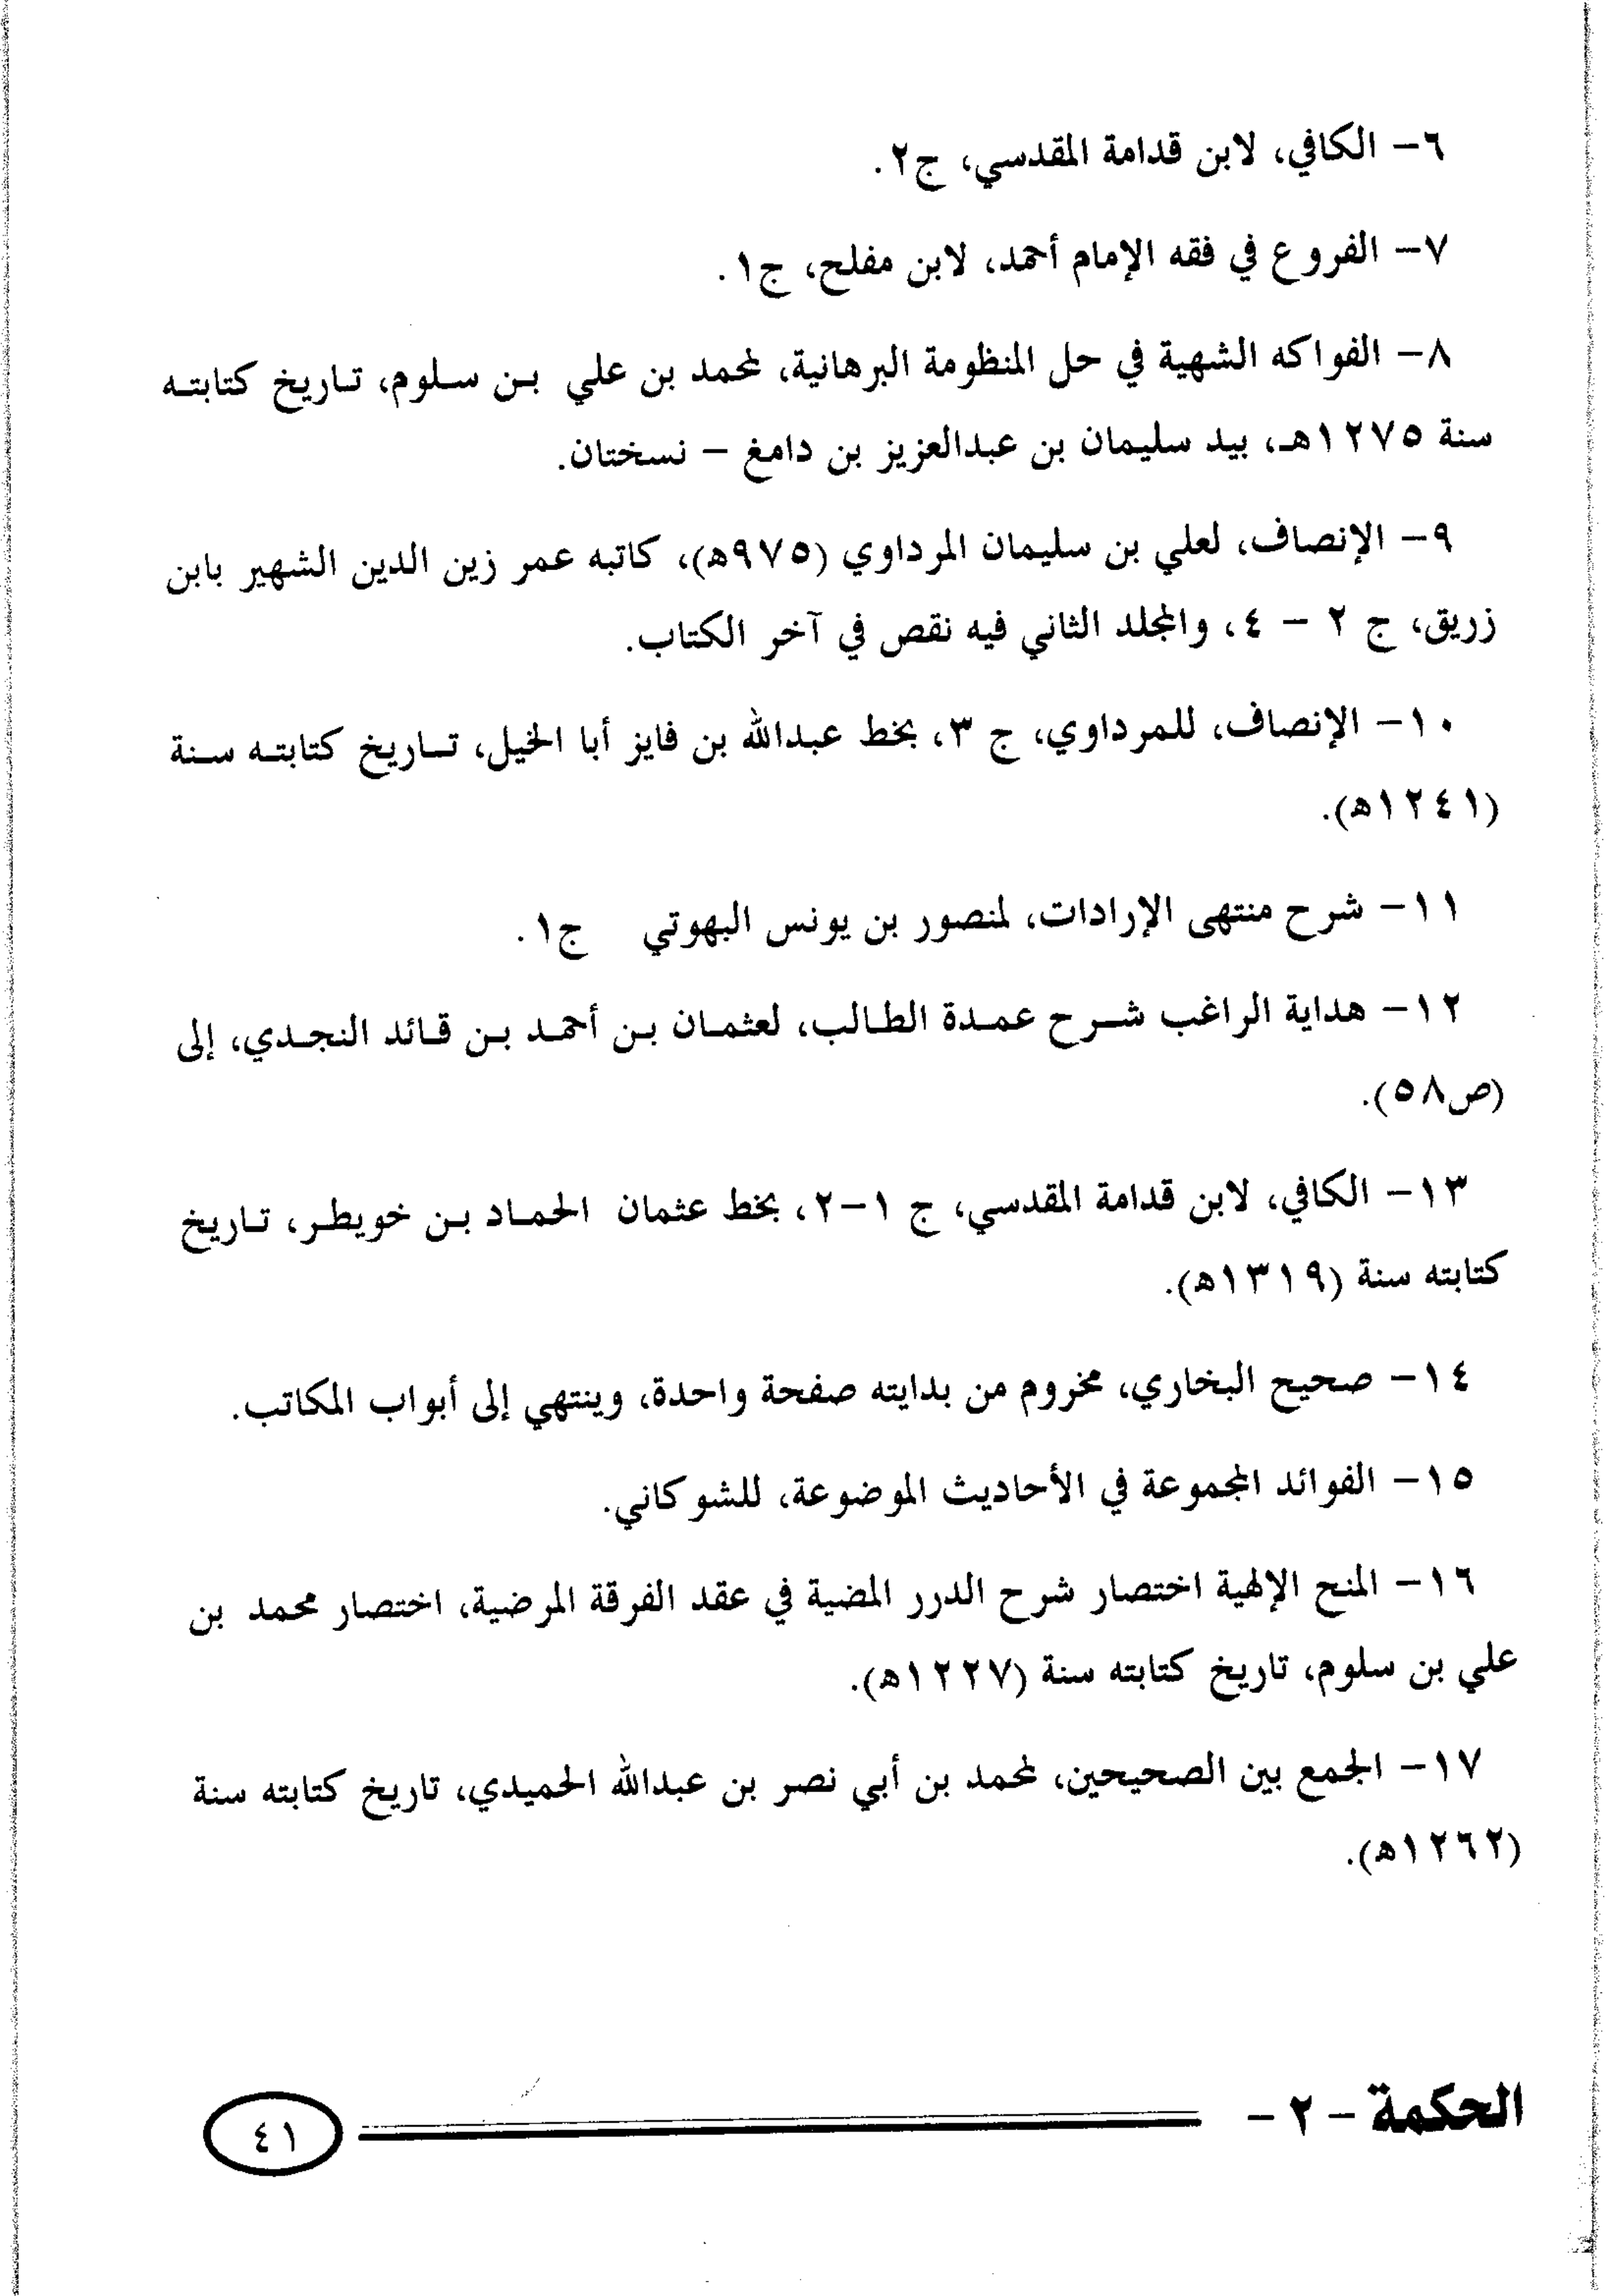 ٦- الكافي، لابن قدامة المقدسي، ج٢.
٧- الفروع في فقه الإمام أحمد، لابن مفلح، ج١.
٨- الفواكه الشهية في حل المنظومة البرهانية، لمحمد بن علي بن سلوم، تاريخ كتابته
سنة ١٢٧٥هـ، بيد سليمان بن عبدالعزيز بن دامغ - نسختان.
٩- الإنصاف، لعلي بن سليمان المرداوي (٩٧٥ه)، كاتبه عمر زين الدين الشهير بابن
زريق، ج ٢ - ٤، والمجلد الثاني فيه نقص في آخر الكتاب.
١٠- الإنصاف، للمرداوي، ج ٣، بخط عبدالله بن فايز أبا الخيل، تاريخ كتابته سنة
(١٢٤١ه).
١١- شرح منتهى الإرادات، لمنصور بن يونس البهوتي ج١.
١٢- هداية الراغب شرح عمدة الطالب، لعثمان بن أحمد بن قائد النجدي، إلى
(ص٥٨).
١٣- الكافي، لابن قدامة المقدسي، ج ١-٢، بخط عثمان الحماد بن خويطر، تاريخ
كتابته سنة (١٣١٩ه).
١٤- صحيح البخاري، مخروم من بدايته صفحة واحدة، وينتهي إلى أبواب المكاتب.
١٥- الفوائد المجموعة في الأحاديث الموضوعة، للشوكاني.
١٦- المنح الإلهية اختصار شرح الدرر المضية في عقد الفرقة المرضية، اختصار محمد بن
علي بن سلوم، تاريخ كتابته سنة (١٢٢٧ه).
١٧- الجمع بين الصحيحين، لمحمد بن أبي نصر بن عبدالله الحميدي، تاريخ كتابته سنة
(١٢٦٢ه).
الحكمة - ٢ -
٤١